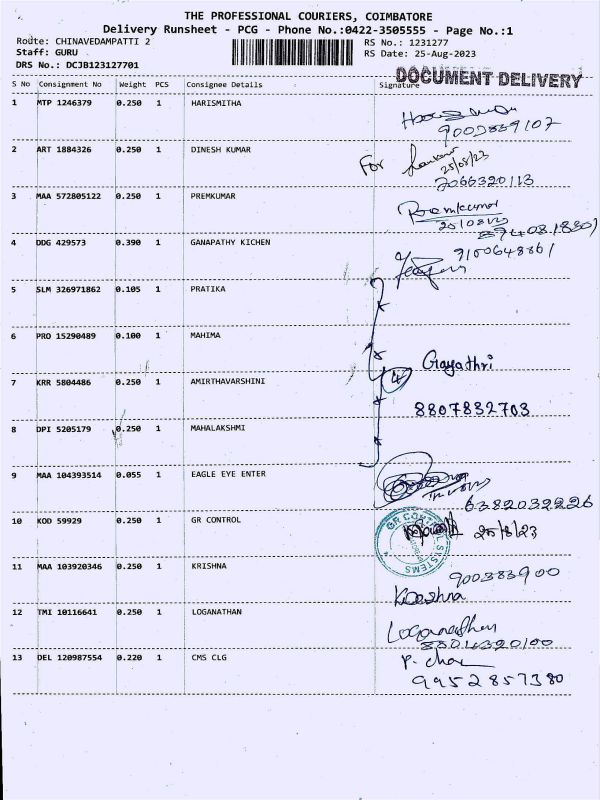 THE PROFESSIONAL COURIERS, COIMBATORE
Delivery Runsheet - PCG - Phone No.:0422-3505555 - Page No.:1
Route: CHINAVEDAMPATTI 2 RS No.: 1231277
Staff: GURU RS Date: 25-Aug-2023
DRS No.: DCJB123127701
DOCUMENT DELIVERY
S No Consignment No Weight PCS Consignee Details Signature
1 MTP 1246379 0.250 1 HARISMITHA
9003869107
2 ART 1884326 0.250 1 DINESH KUMAR For
25/08/23
7066320113
3 MAA 572805122 0.250 1 PREMKUMAR Premkumar
4 DDG 429573 0.390 1 GANAPATHY KICHEN 9100648861
5 SLM 326971862 0.105 1 PRATIKA
6 PRO 15290489 0.100 1 MAHIMA
Gayathri
7 KRR 5804486 0.250 1 AMIRTHAVARSHINI 4
8807832703
8 DPI 5205179 0.250 1 MAHALAKSHMI
9 MAA 104393514 0.055 1 EAGLE EYE ENTER
6382032226
10 KOD 59929 0.250 1 GR CONTROL GR CONTROL SYSTEMS 25/8/23
11 MAA 103920346 0.250 1 KRISHNA 900383900
Krishna
12 TMI 10116641 0.250 1 LOGANATHAN Loganathan
88014320100
13 DEL 120987554 0.220 1 CMS CLG
9952857380